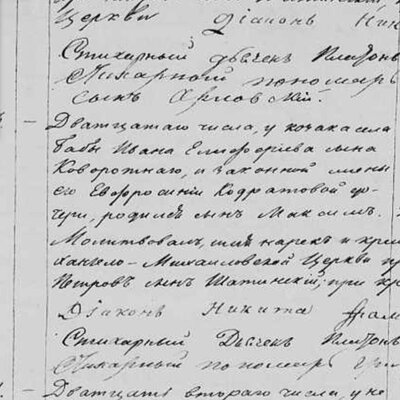 Церкви Діаконъ Ник
Стихарный дьячекъ Платонъ
Стихарный пономарь
сынъ Орловскій.
Двадцатаго числа, у козака села
Бабы Ивана Елифоріева сына
Коворотнаго, и законной жены
его Евфросиніи Кодратовой до-
чери, родился сынъ Максимъ.
Молитвовалъ, имя нарекъ и кре
хангело-Михаиловской Церкви
Петровъ сынъ Шатинскій; при кр
Діаконъ Никита
Стихарный Дьячекъ Платонъ
Стихарный пономарь Гри
Двадцать втораго числа, у не